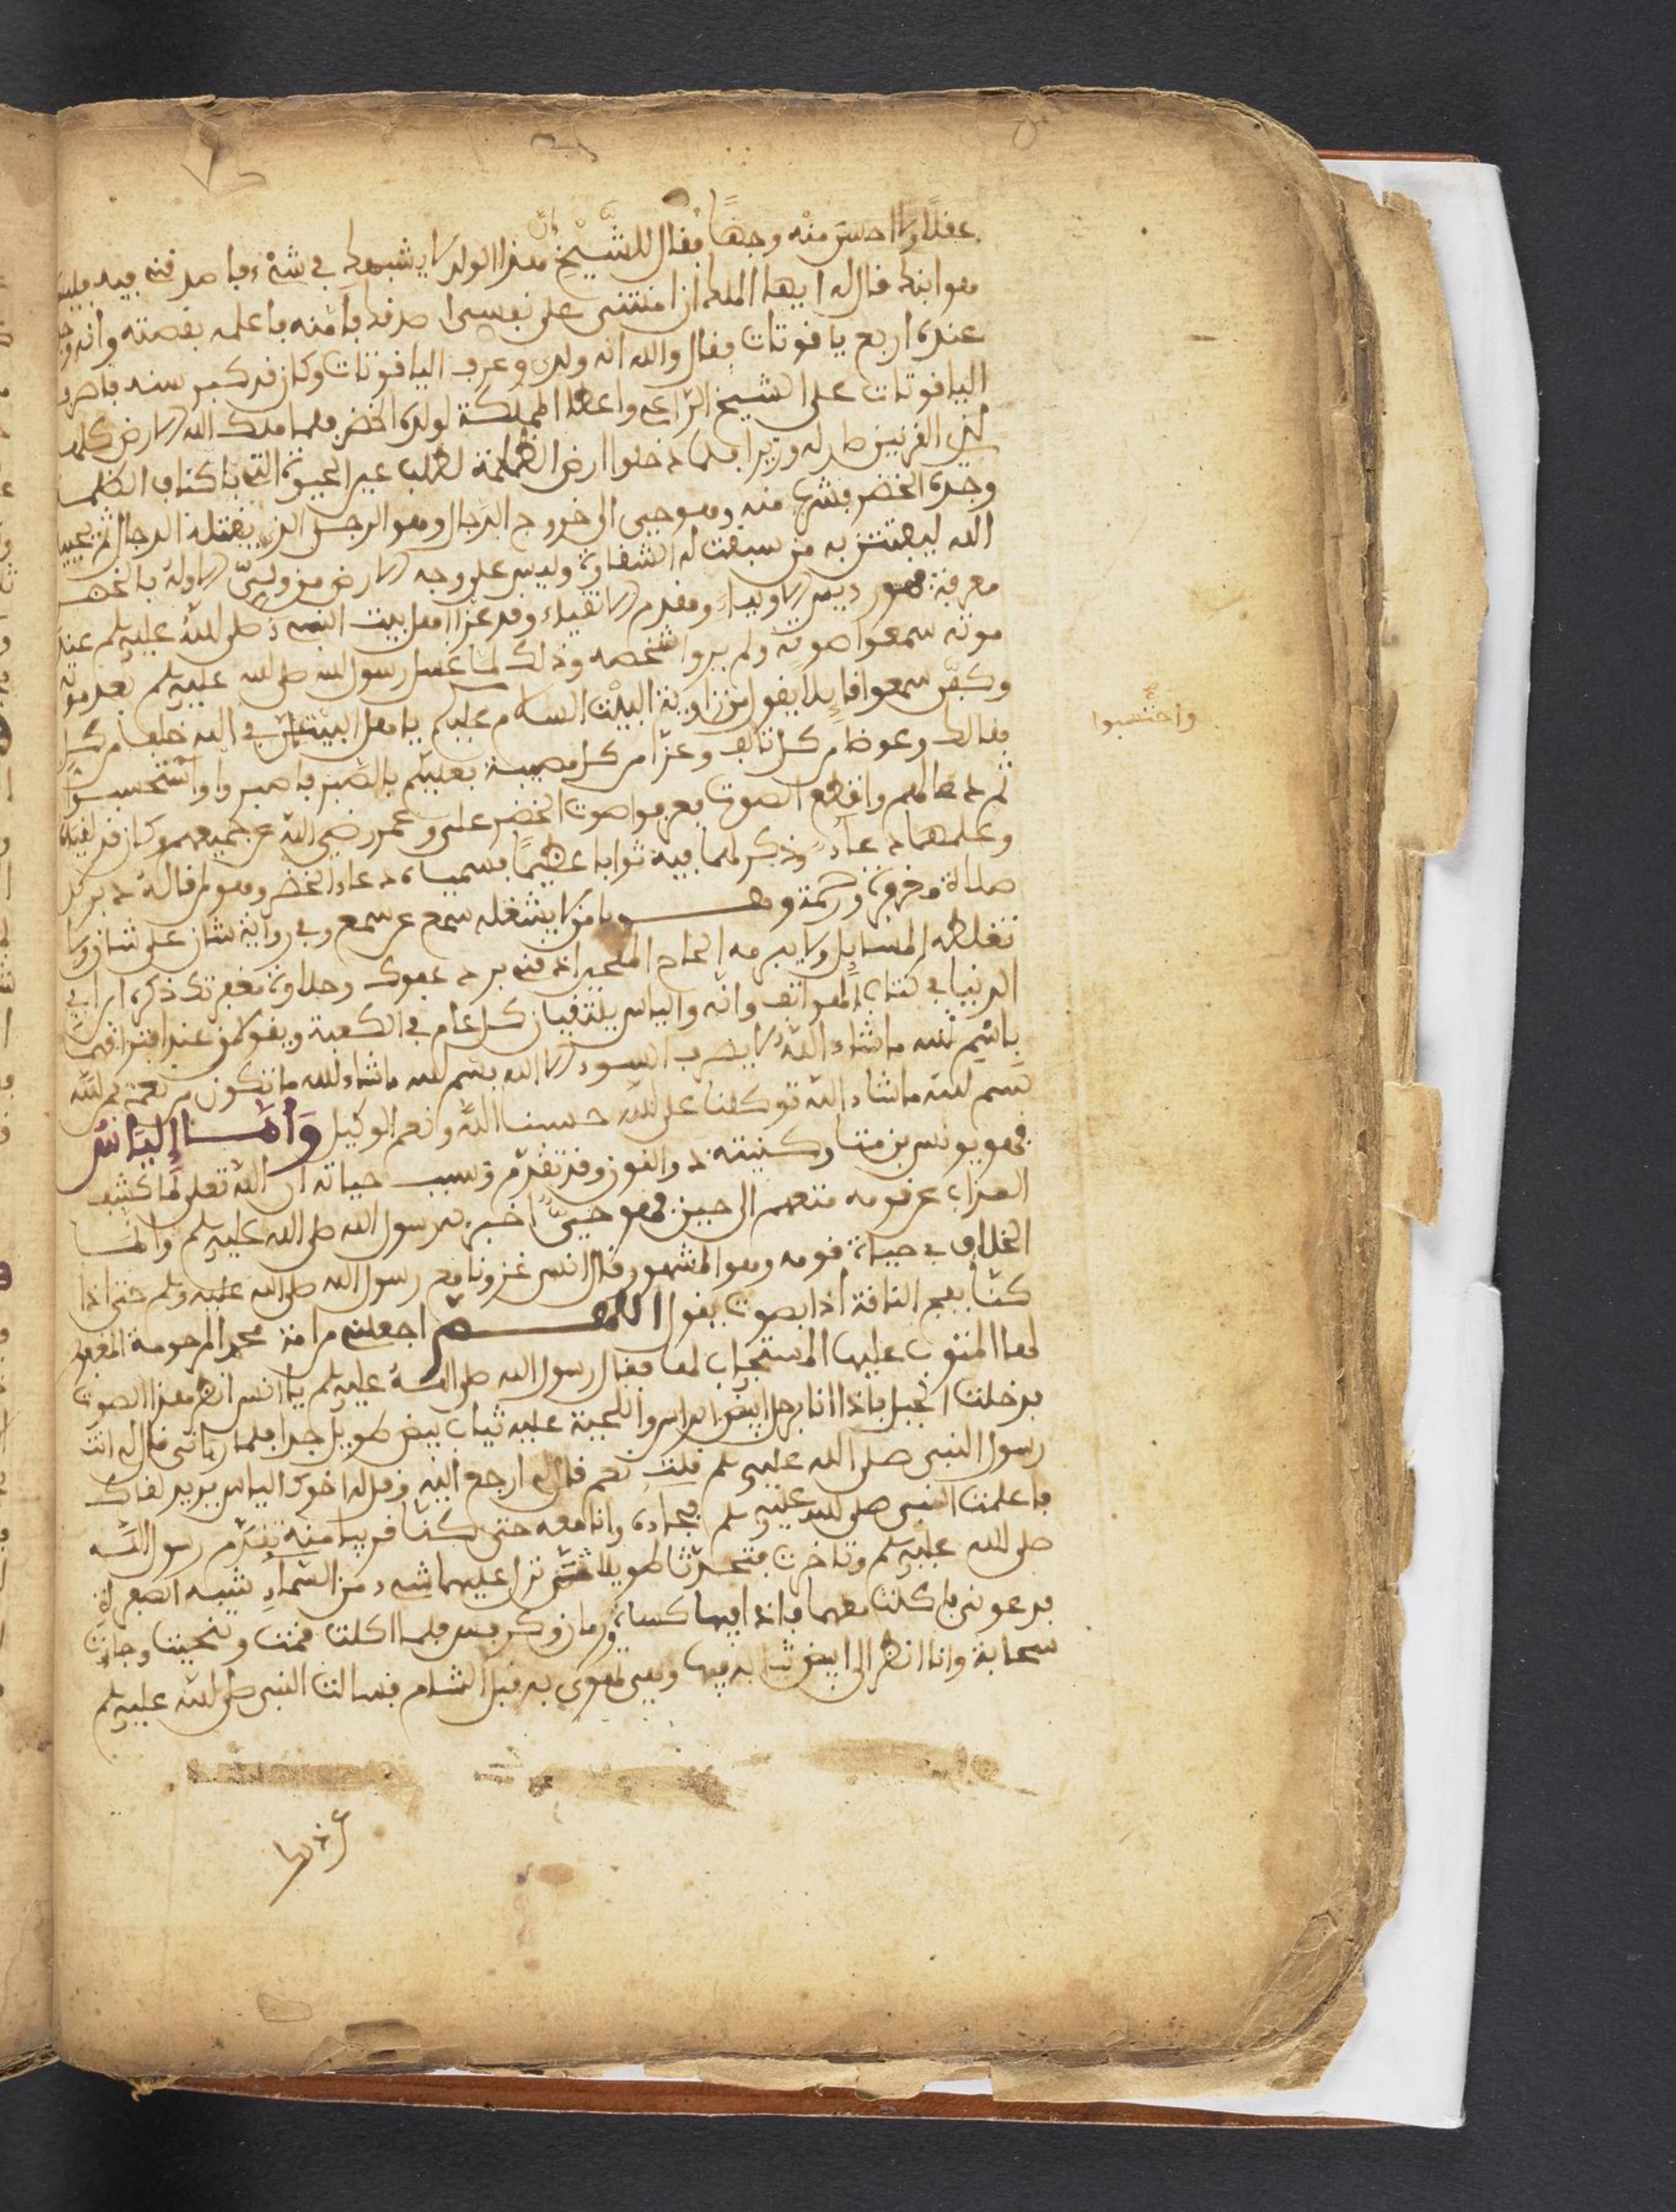 عفلا ولا احسن منه وجها ففال للشيخ ان هذا الولد لا يشبهك في شيء فاصدفني فيه فليس
هو ابنك فال له ايها الملك ان امنتني على نفسي اصدفك فامنه فاعلمه بفصته وانه وجد
عنده اربع يافوتات ففال والله انه ولدي وعرف اليافوتات وكان فد كبر سنه فاصرف
اليافوتات على الشيخ الراعي واعطا المملكة لولده الخضر فلما ملك الله الارض كلها
لذي الفرنين صار له وزيرا فلما دخلوا ارض الظلمة لطلب عين الحيوة التي باكناف الظلمات
وجده الخضر فشرب منه وهو حيى الى خروج الدجال وهو الرجل الذي يفتله الدجال ثم يحييه
الله ليفتتن به من سبفت له الشفاوة وليس على وجه الارض من ولي الا وله بالخضر
معرفة فهو رييس الاوليا ومفدم الاتفياء وفد عزا اهل بيت النبي صلى الله عليه وسلم عند
موته سمعوا صوته ولم يروا شخصه وذلك لما غسل رسول الله صلى الله عليه وسلم بعد موته
وكفن سمعوا فايلا يفول من زاوية البيت السلام عليكم يا اهل البيت ان في الله خلفا من كل
هالك وعوضا من كل تالف وعزا من كل مصيبة فعليكم بالصبر فاصبروا واستحسبوا
واحتسبوا
ثم دعا لهم وانفطع الصوت فعرفوا صوت الخضر على وعمر رضي الله عن جميعهم وكان فد لفياه
وعلمهما دعاء وذكر لهما فيه ثوابا عظيما فسمياه دعاء الخضر وهو ان فاله دبر كل
صلاة مغفرة ورحمة وهو يا من لا يشغله سمع عن سمع وفي رواية شان على شان ولا
تغلطه المسايل ولا يبرمه الحاح الملحين اذفني برد عفوك وحلاوة مغفرتك ذكره ابن ابي
الدنيا في كتاب الهواتف وانه والياس يلتفيان كل عام في الكعبة ويفولان عند افترافهما
باسم الله ما شاء الله لا يصرف السوء الا الله بسم الله ما شاء الله ما تكون من نعمة فمن الله
بسم الله ما شاء الله توكلنا على الله حسبنا الله ونعم الوكيل وأما إلياس
فهو يونس بن متا وكنيته ذو النون وفد تفدم وسبب حياته ان الله تعلى لما كشف
العذاب عن فومه متعهم الى حين فهو حي اخبر به رسول الله صلى الله عليه وسلم وانما
الخلاف في حياة فومه وهو المشهور وفال انس غزونا مع رسول الله صلى الله عليه وسلم حتى اذا
كنا بفج النافة اذا بصوت يفول اللهم اجعلني من امة محمد المرحومة المغفور
لها المتوب عليها المستجاب لها ففال رسول الله صلى الله عليه وسلم يا انس انظر هذا الصوت
فدخلت الجبل فاذا انا برجل ابيض الراس واللحية عليه ثياب بيض طويل جدا فلما رءاني فال لي انت
رسول النبي صلى الله عليه وسلم فلت نعم فال لي ارجع اليه وفل له اخوك الياس يريد لفاك
فاعلمت النبي صلى الله عليه وسلم فجاء وانا معه حتى كنا فريبا منه تفدم رسول الله
صلى الله عليه وسلم وتاخرت فتحدثا طويلا حتى نزل عليهما شيء من السماء شبه السفرة
فدعوني فاكلت معهما فاذا فيها كماة ورمان وكرفس فلما اكلت فمت وتنحيت وجاءت
سحابة وانا انظر الى ابيض ثيابه فيها وهي تهوي به فبل الشام فسالت النبي صلى الله عليه وسلم